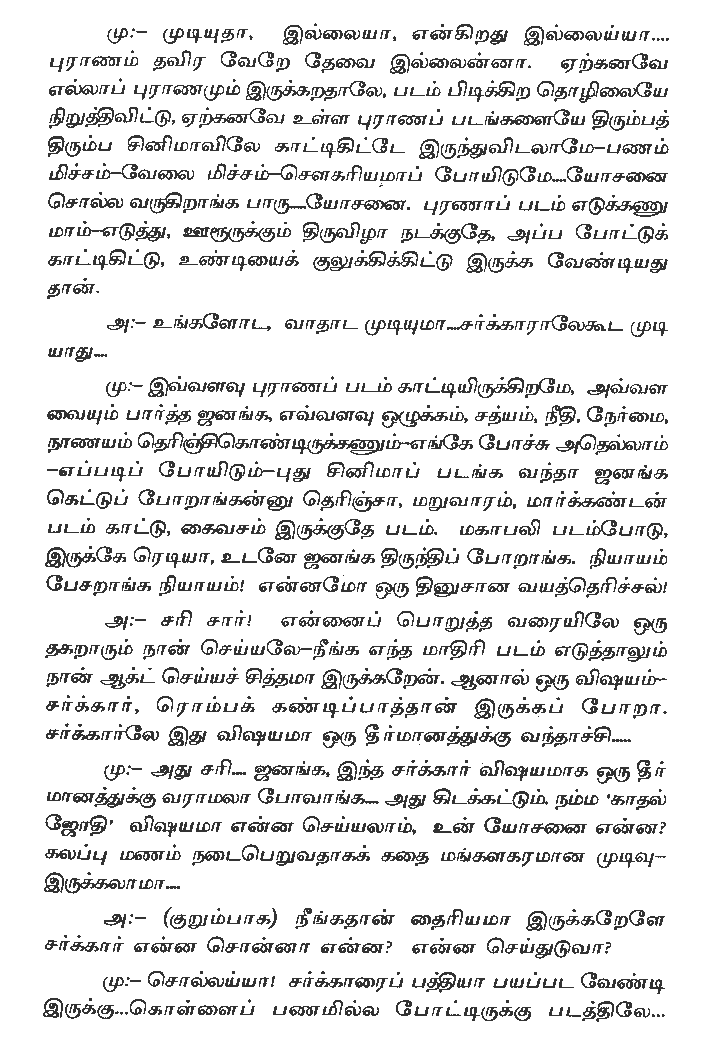 மு:– முடியுதா, இல்லையா, என்கிறது இல்லைய்யா....
புராணம் தவிர வேறே தேவை இல்லைன்னா. ஏற்கனவே
எல்லாப் புராணமும் இருக்கறதாலே, படம் பிடிக்கிற தொழிலையே
நிறுத்திவிட்டு, ஏற்கனவே உள்ள புராணப் படங்களையே திரும்பத்
திரும்ப சினிமாவிலே காட்டிகிட்டே இருந்துவிடலாமே–பணம்
மிச்சம்–வேலை மிச்சம்–சௌகரியமாப் போயிடுமே....யோசனை
சொல்ல வருகிறாங்க பாரு....யோசனை. புரணாப் படம் எடுக்கணு
மாம்–எடுத்து, ஊரூருக்கும் திருவிழா நடக்குதே, அப்ப போட்டுக்
காட்டிகிட்டு, உண்டியைக் குலுக்கிக்கிட்டு இருக்க வேண்டியது
தான்.
அ:– உங்களோட, வாதாட முடியுமா....சர்க்காராலேகூட முடி
யாது....
மு:– இவ்வளவு புராணப் படம் காட்டியிருக்கிறமே, அவ்வள
வையும் பார்த்த ஜனங்க, எவ்வளவு ஒழுக்கம், சத்யம், நீதி, நேர்மை,
நாணயம் தெரிஞ்சிகொண்டிருக்கணும்–எங்கே போச்சு அதெல்லாம்
–எப்படிப் போயிடும்–புது சினிமாப் படங்க வந்தா ஜனங்க
கெட்டுப் போறாங்கன்னு தெரிஞ்சா, மறுவாரம், மார்க்கண்டன்
படம் காட்டு, கைவசம் இருக்குதே படம். மகாபலி படம்போடு,
இருக்கே ரெடியா, உடனே ஜனங்க திருந்திப் போறாங்க. நியாயம்
பேசறாங்க நியாயம்! என்னமோ ஒரு தினுசான வயத்தெரிச்சல்!
அ:– சரி சார்! என்னைப் பொறுத்த வரையிலே ஒரு
தகறாரும் நான் செய்யலே–நீங்க எந்த மாதிரி படம் எடுத்தாலும்
நான் ஆக்ட் செய்யச் சித்தமா இருக்கறேன். ஆனால் ஒரு விஷயம்–
சர்க்கார், ரொம்பக் கண்டிப்பாத்தான் இருக்கப் போறா.
சர்க்கார்லே இது விஷயமா ஒரு தீர்மானத்துக்கு வந்தாச்சி.....
மு:– அது சரி.... ஜனங்க, இந்த சர்க்கார் விஷயமாக ஒரு தீர்
மானத்துக்கு வராமலா போவாங்க.... அது கிடக்கட்டும். நம்ம 'காதல்
ஜோதி' விஷயமா என்ன செய்யலாம், உன் யோசனை என்ன?
கலப்பு மணம் நடைபெறுவதாகக் கதை மங்களகரமான முடிவு–
இருக்கலாமா....
அ:– (குறும்பாக) நீங்கதான் தைரியமா இருக்கறேளே
சர்க்கார் என்ன சொன்னா என்ன? என்ன செய்துடுவா?
மு:– சொல்லய்யா! சர்க்காரைப் பத்தியா பயப்பட வேண்டி
இருக்கு...கொள்ளைப் பணமில்ல போட்டிருக்கு படத்திலே...